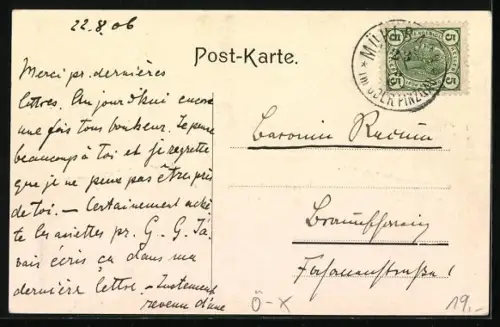 22.8.06
Post-Karte.
5 5
5 5
MÜHLB
im OBER PINZGAU
Merci pr. dernières
lettres. Aujourd'hui encore
une fois tous bonheur. Je pense
beaucoup à toi et je regrette
que je ne peux pas être près
de toi. – Certainement achè
te les assiettes pr. G. G. J'a
vais écris ça dans ma
dernière lettre. – Justement
revenu d'une
Baronin
Braunschweig
Fasanenstraße 1
Ö-X
19,-